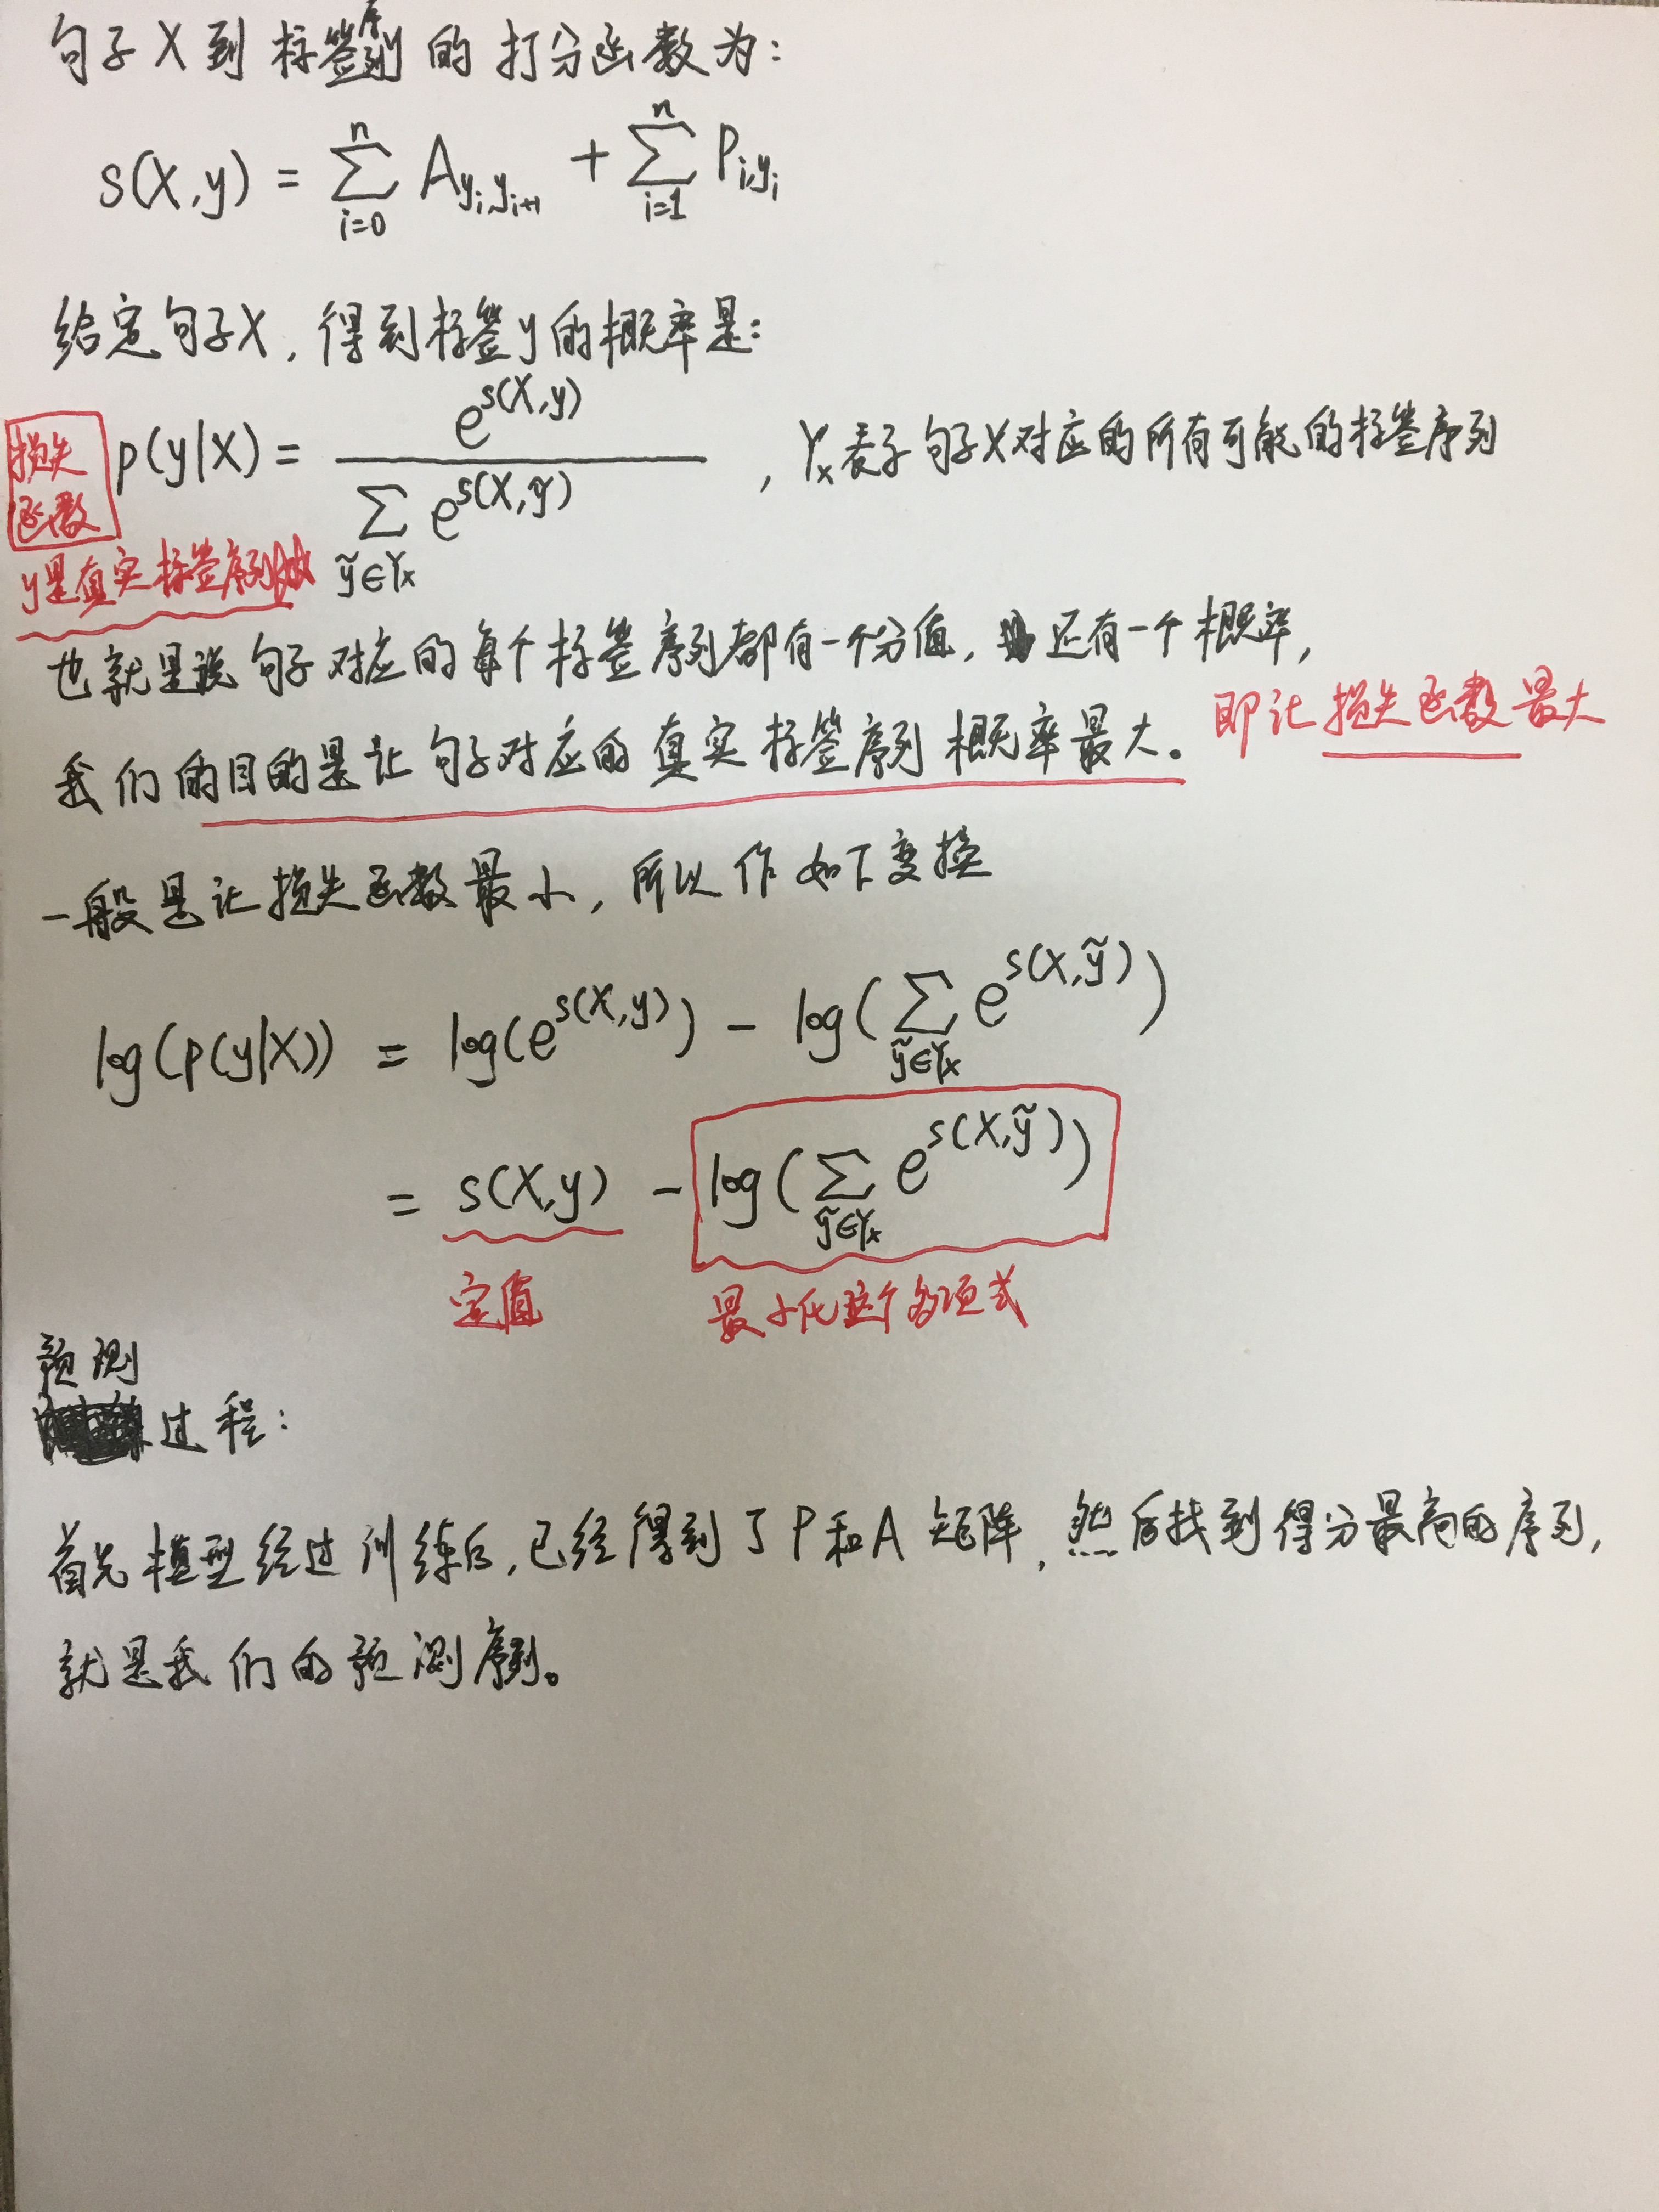 句子X到标签序列的打分函数为:
s(X,y) = ∑_{i=0}^{n} A_{y_i,y_{i+1}} + ∑_{i=1}^{n} P_{i,y_i}
给定句子X,得到标签y的概率是:
损失函数
p(y|X) = e^{s(X,y)} / ∑_{ỹ∈Y_X} e^{s(X,ỹ)} , Y_X表示句子X对应的所有可能的标签序列
y是真实标签序列
也就是说句子对应的每个标签序列都有一个分值, 还有一个概率,
我们的目的是让句子对应的真实标签序列概率最大。 即让损失函数最大
一般是让损失函数最小, 所以作如下变换
log(p(y|X)) = log(e^{s(X,y)}) - log(∑_{ỹ∈Y_X} e^{s(X,ỹ)})
= s(X,y) - log(∑_{ỹ∈Y_X} e^{s(X,ỹ)})
定值 最小化这个多项式
预测
过程:
首先模型经过训练后,已经得到了P和A矩阵, 然后找到得分最高的序列,
就是我们的预测序列。